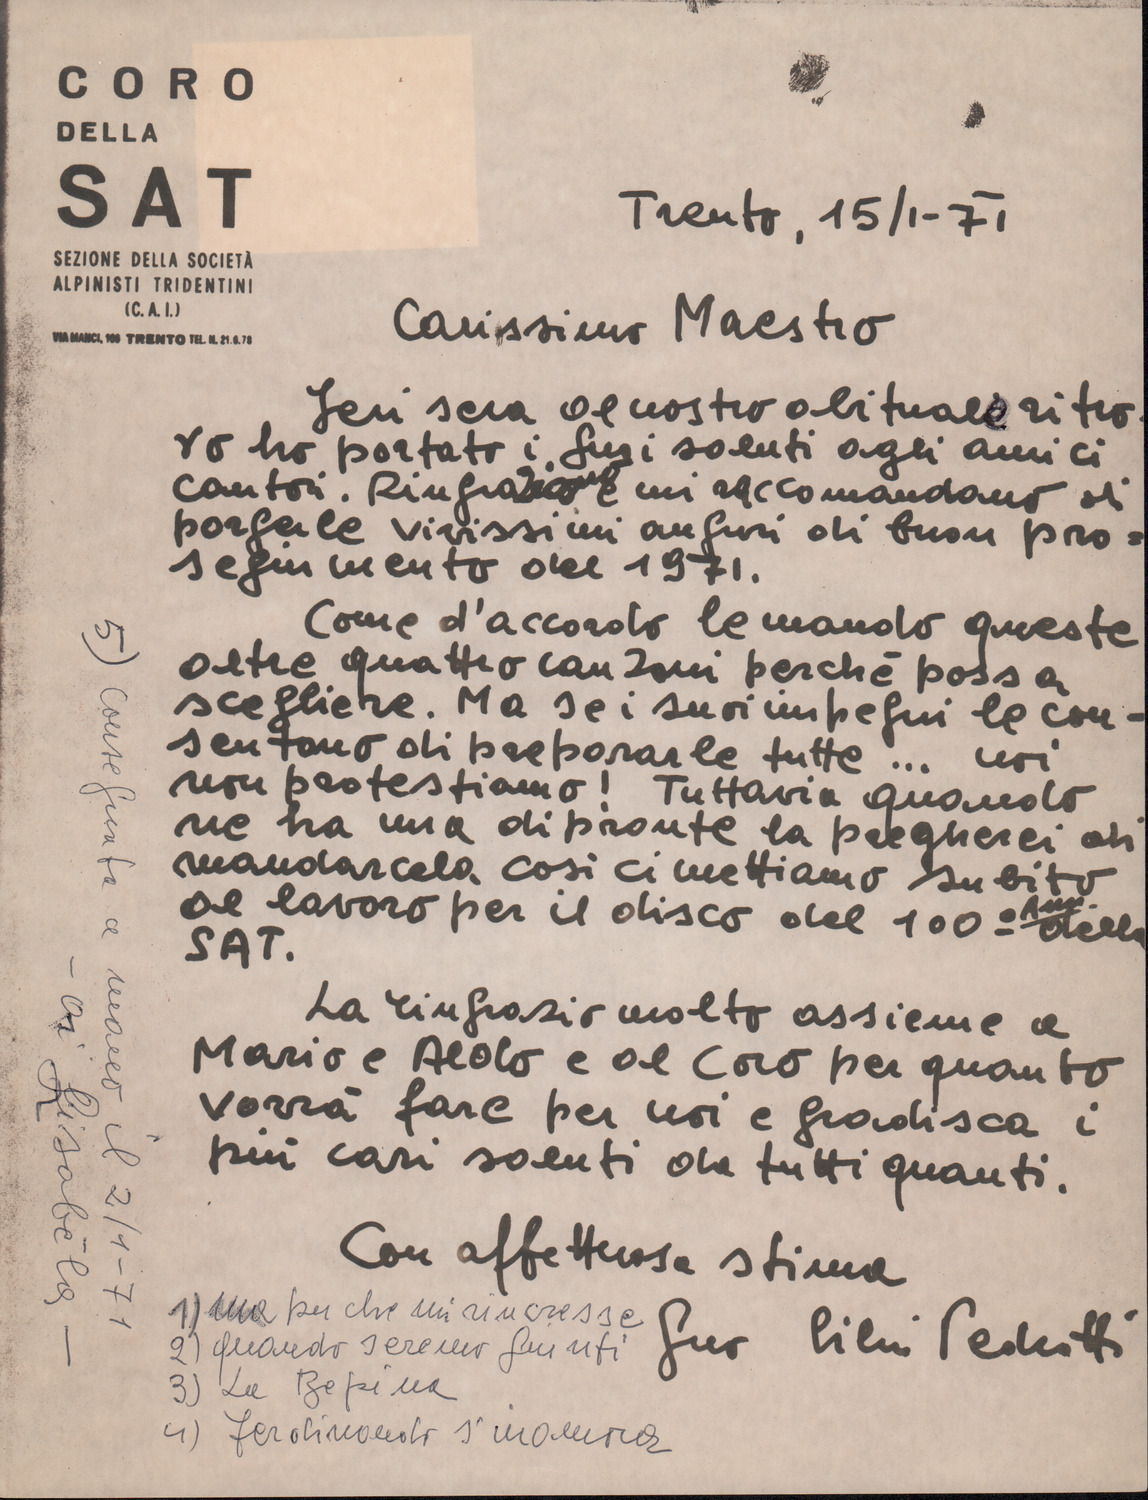 CORO
DELLA
SAT
SEZIONE DELLA SOCIETÀ
ALPINISTI TRIDENTINI
(C. A. I.)
VIA MANCI, 109 TRENTO TEL. N. 21.6.78
Trento, 15/1-71
Carissimo Maestro
Jeri sera al nostro abituale ritro-
vo ho portato i suoi saluti agli amici
cantori. Ringraziano e mi raccomandano di
porgerle vivissimi auguri di buon pro=
seguimento del 1971.
Come d'accordo le mando queste
altre quattro canzoni perchè possa
scegliere. Ma se i suoi impegni le con-
sentono di prepararle tutte ... noi
non protestiamo! Tuttavia quando
ne ha una di pronte la pregherei di
mandarcela così ci mettiamo subito
al lavoro per il disco del 100º Ann. della
SAT.
La ringrazio molto assieme a
Mario e Aldo e al Coro per quanto
vorrà fare per noi e gradisca i
più cari saluti da tutti quanti.
Con affettuosa stima
Suo Silvio Pedrotti
1) perche mi rincresse
2) quando seremo giunti
3) La Bepina
4) Ferdinando s'inamora
5) Consegnata a mano il 2/1-71
- oi Lisabéla -